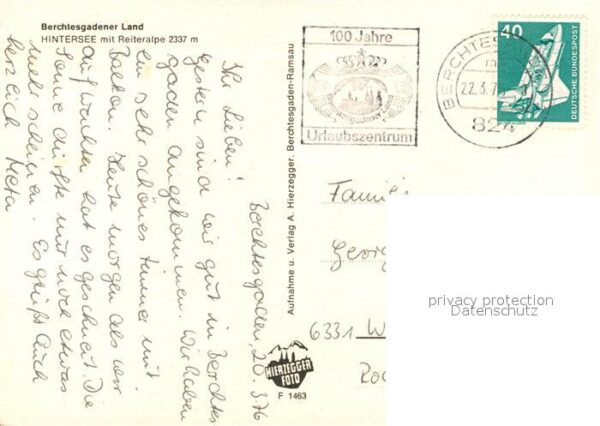 Berchtesgadener Land
HINTERSEE mit Reiteralpe 2337 m
Berchtesgaden, 20.3.76
Ihr Lieben!
Gestern sind wir gut in Berchtes
gaden angekommen. Wir haben
ein sehr schönes Zimmer mit
Balkon. Heute morgen als wir
aufwachten hat es geschneit. Die
Sonne dürfte nur noch etwas
mehr scheinen. Es grüßt Euch
herzlich Meta
Aufnahme u. Verlag A. Hierzegger, Berchtesgaden-Ramsau
HIERZEGGER
FOTO
F 1463
100 Jahre
Berchtesgadener Land
Urlaubszentrum
BERCHTES
22.3.7
824
40
DEUTSCHE BUNDESPOST
Familie
Georg
6331 W
privacy protection
Datenschutz